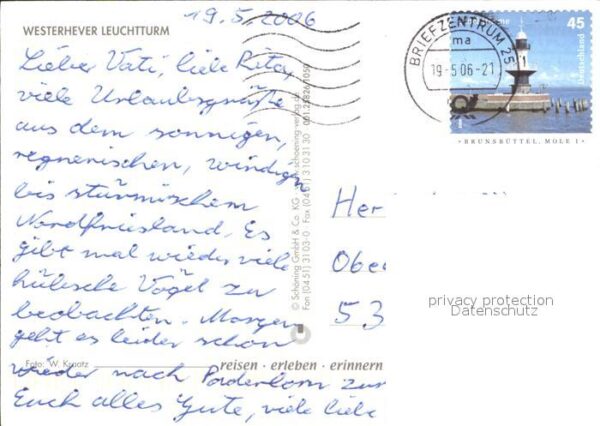 WESTERHEVER LEUCHTTURM
19.5.2006
Lieber Vati, liebe Rita,
viele Urlaubsgrüße
aus dem sonnigen,
regnerischen, windigen
bis stürmischem
Nordfriesland. Es
gibt mal wieder viele
hübsche Vögel zu
beobachten. Morgen
geht es leider schon
wieder nach Paderborn zur
Euch alles Gute, viele liebe
Foto: W. Kraatz
reisen · erleben · erinnern
© Schöning GmbH & Co. KG
Fax (04 51) 3 10 3-0
BRIEFZENTRUM 25
ma
19-5.06-21
45
Deutschland
BRUNSBÜTTEL, MOLE 1
Her
Obe
53
privacy protection
Datenschutz